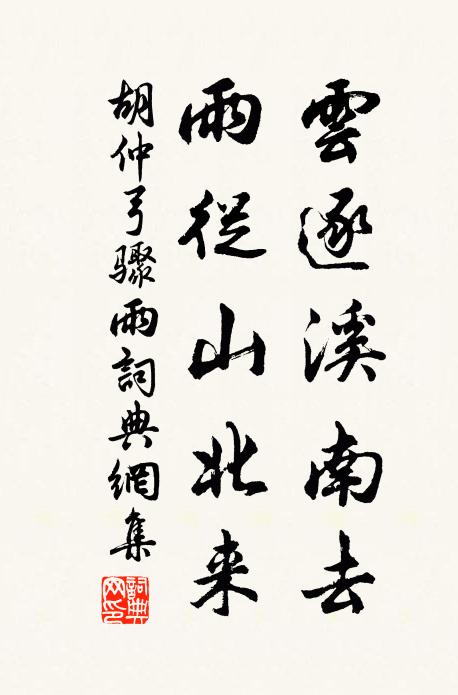 雲逐溪南去
雨從山北来
胡仲弓驟雨詞典網集
詞典網印